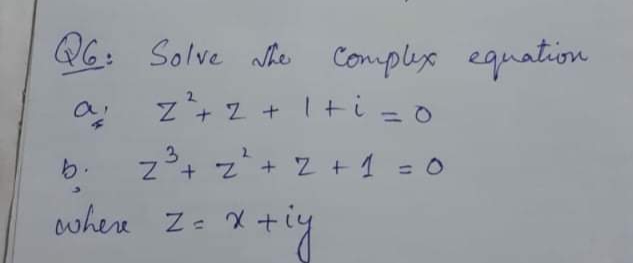 Q6: Solve the complex equation
a. z² + z + 1 + i = 0
b. z³ + z² + z + 1 = 0
where z = x + iy